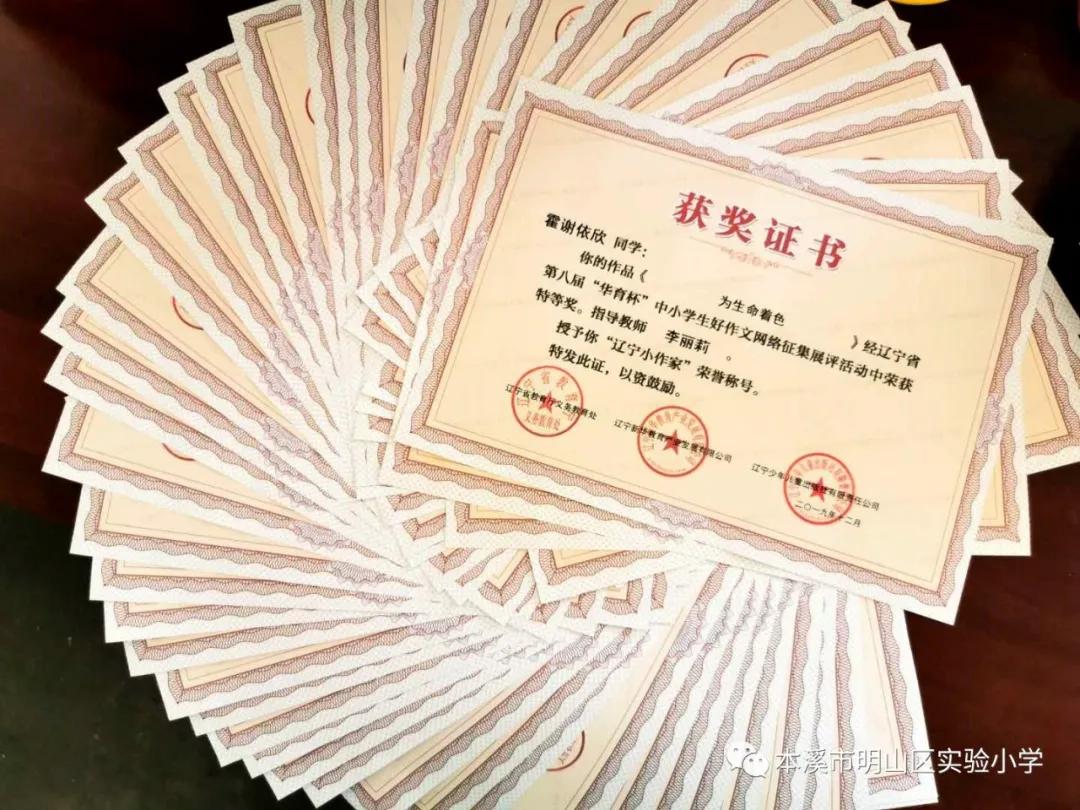 获奖证书
霍谢依欣 同学：
你的作品《 为生命着色 》经辽宁省
第八届“华育杯”中小学生好作文网络征集展评活动中荣获
特等奖。指导教师 李丽莉 。
授予你“辽宁小作家”荣誉称号。
特发此证，以资鼓励。
辽宁省教育厅义务教育处
辽宁新华教育产业发展有限公司
辽宁少年儿童出版社有限责任公司
二〇一九年十二月
本溪市明山区实验小学